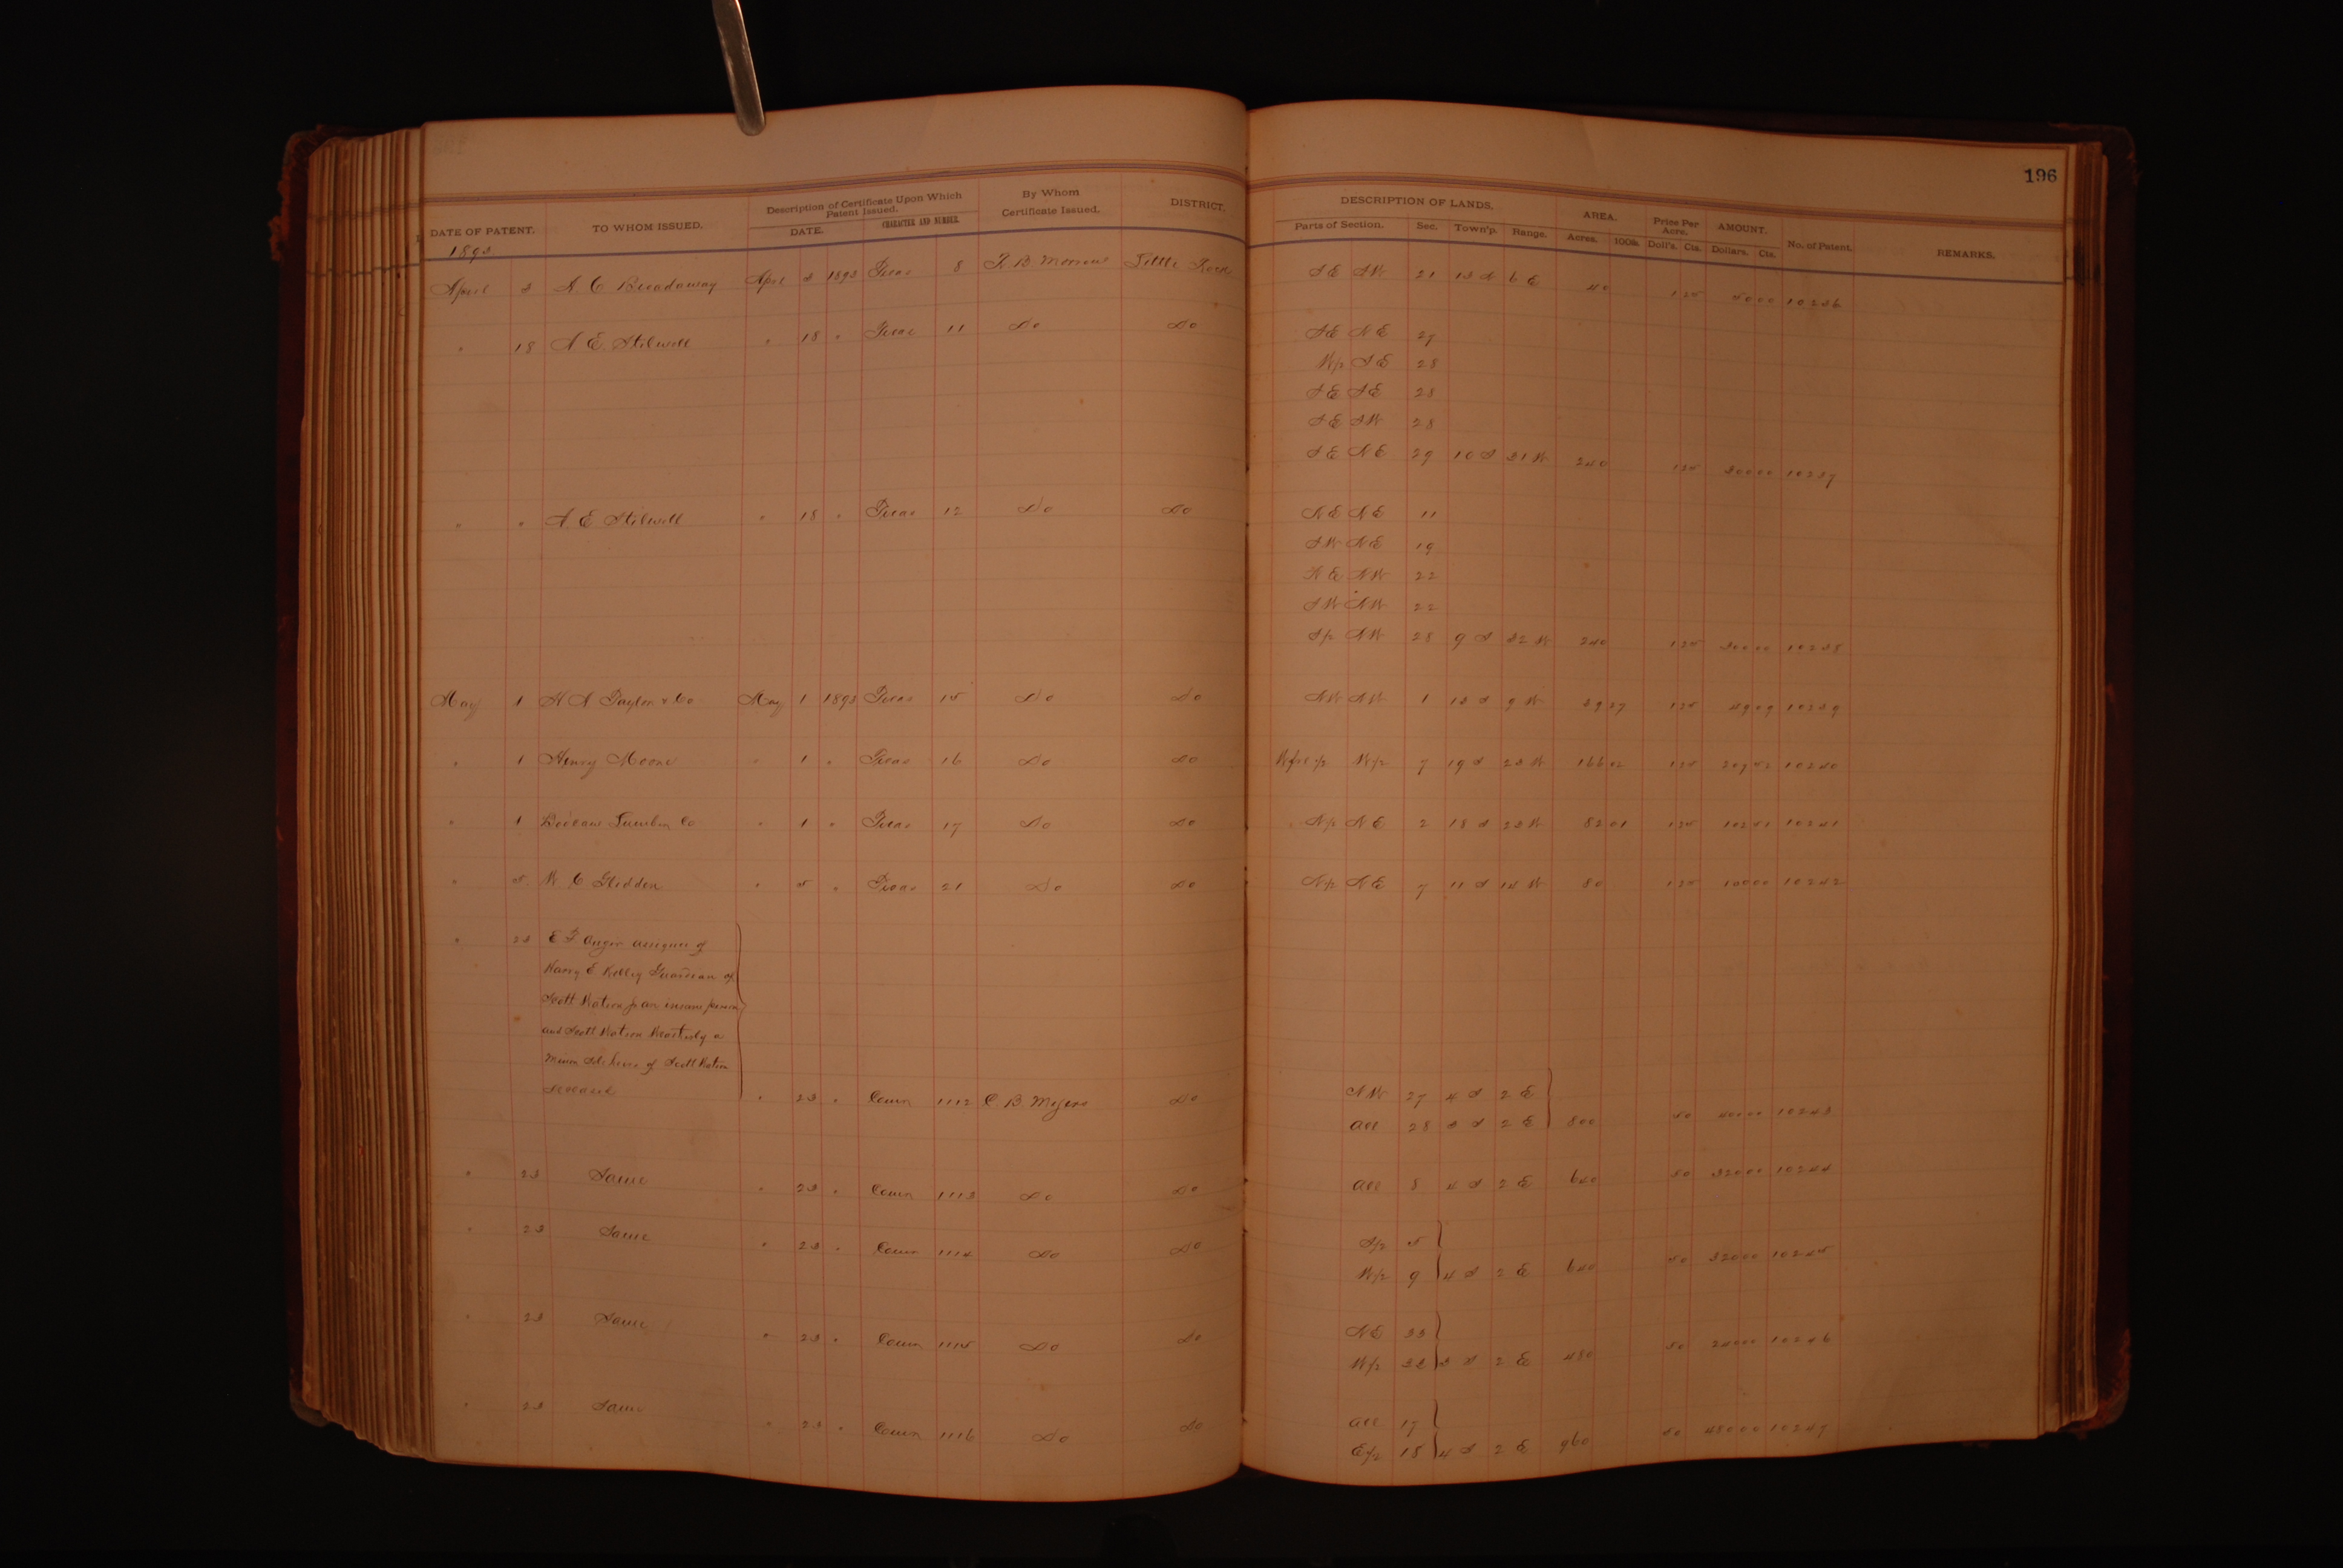 196
DATE OF PATENT. TO WHOM ISSUED. Description of Certificate Upon Which Patent Issued. DATE. CHARACTER AND NUMBER. By Whom Certificate Issued. DISTRICT. DESCRIPTION OF LANDS. Parts of Section. Sec. Town'p. Range. AREA. Acres. 100ths. Price Per Acre. Doll's. Cts. AMOUNT. Dollars. Cts. No. of Patent. REMARKS.
1893
April 3 A. C. Broadaway April 3 1893 8 Little Rock SE SW 21 13 S 6 E 40 1 25 50 00 10236
" 18 A. E. Stilwell " 18 " 11 Do Do SE NE 27
W/2 SE 28
SE SE 28
SE SW 28
SE NE 29 10 S 31 W 240 1 25 300 00 10237
" " A. E. Stilwell " 18 " 12 Do Do NE NE 11
SW NE 19
NE NW 22
SW NW 22
S/2 NW 28 9 S 32 W 240 1 25 300 00 10238
May 1 Taylor & Co May 1 1893 15 Do Do NW NW 1 13 S 9 W 39 27 1 25 49 09 10239
" 1 Henry Moore " 1 " 16 Do Do W/2 7 19 S 23 W 166 02 1 25 207 52 10240
" 1 Bodcaw Lumber Co " 1 " 17 Do Do N/2 NE 2 18 S 23 W 82 01 1 25 102 51 10241
" 5 W C Glidden " 5 " 21 Do Do N/2 NE 7 11 S 14 W 80 1 25 100 00 10242
" 23 E F assignee of
Harry E Kelley Guardian of
Scott an insane person
and Scott a
Minor Sole heir of Scott
deceased " 23 " 1112 C. B. Myers Do NW 27 4 S 2 E
All 28 3 S 2 E 800 50 400 00 10243
" 23 Same " 23 " 1113 Do Do All 8 4 S 2 E 640 50 320 00 10244
" 23 Same " 23 " 1114 Do Do S/2 5
W/2 9 4 S 2 E 640 50 320 00 10245
" 23 Same " 23 " 1115 Do Do NE 33
W/2 33 3 S 2 E 480 50 240 00 10246
" 23 Same " 23 " 1116 Do Do All 17
E/2 18 4 S 2 E 960 50 480 00 10247